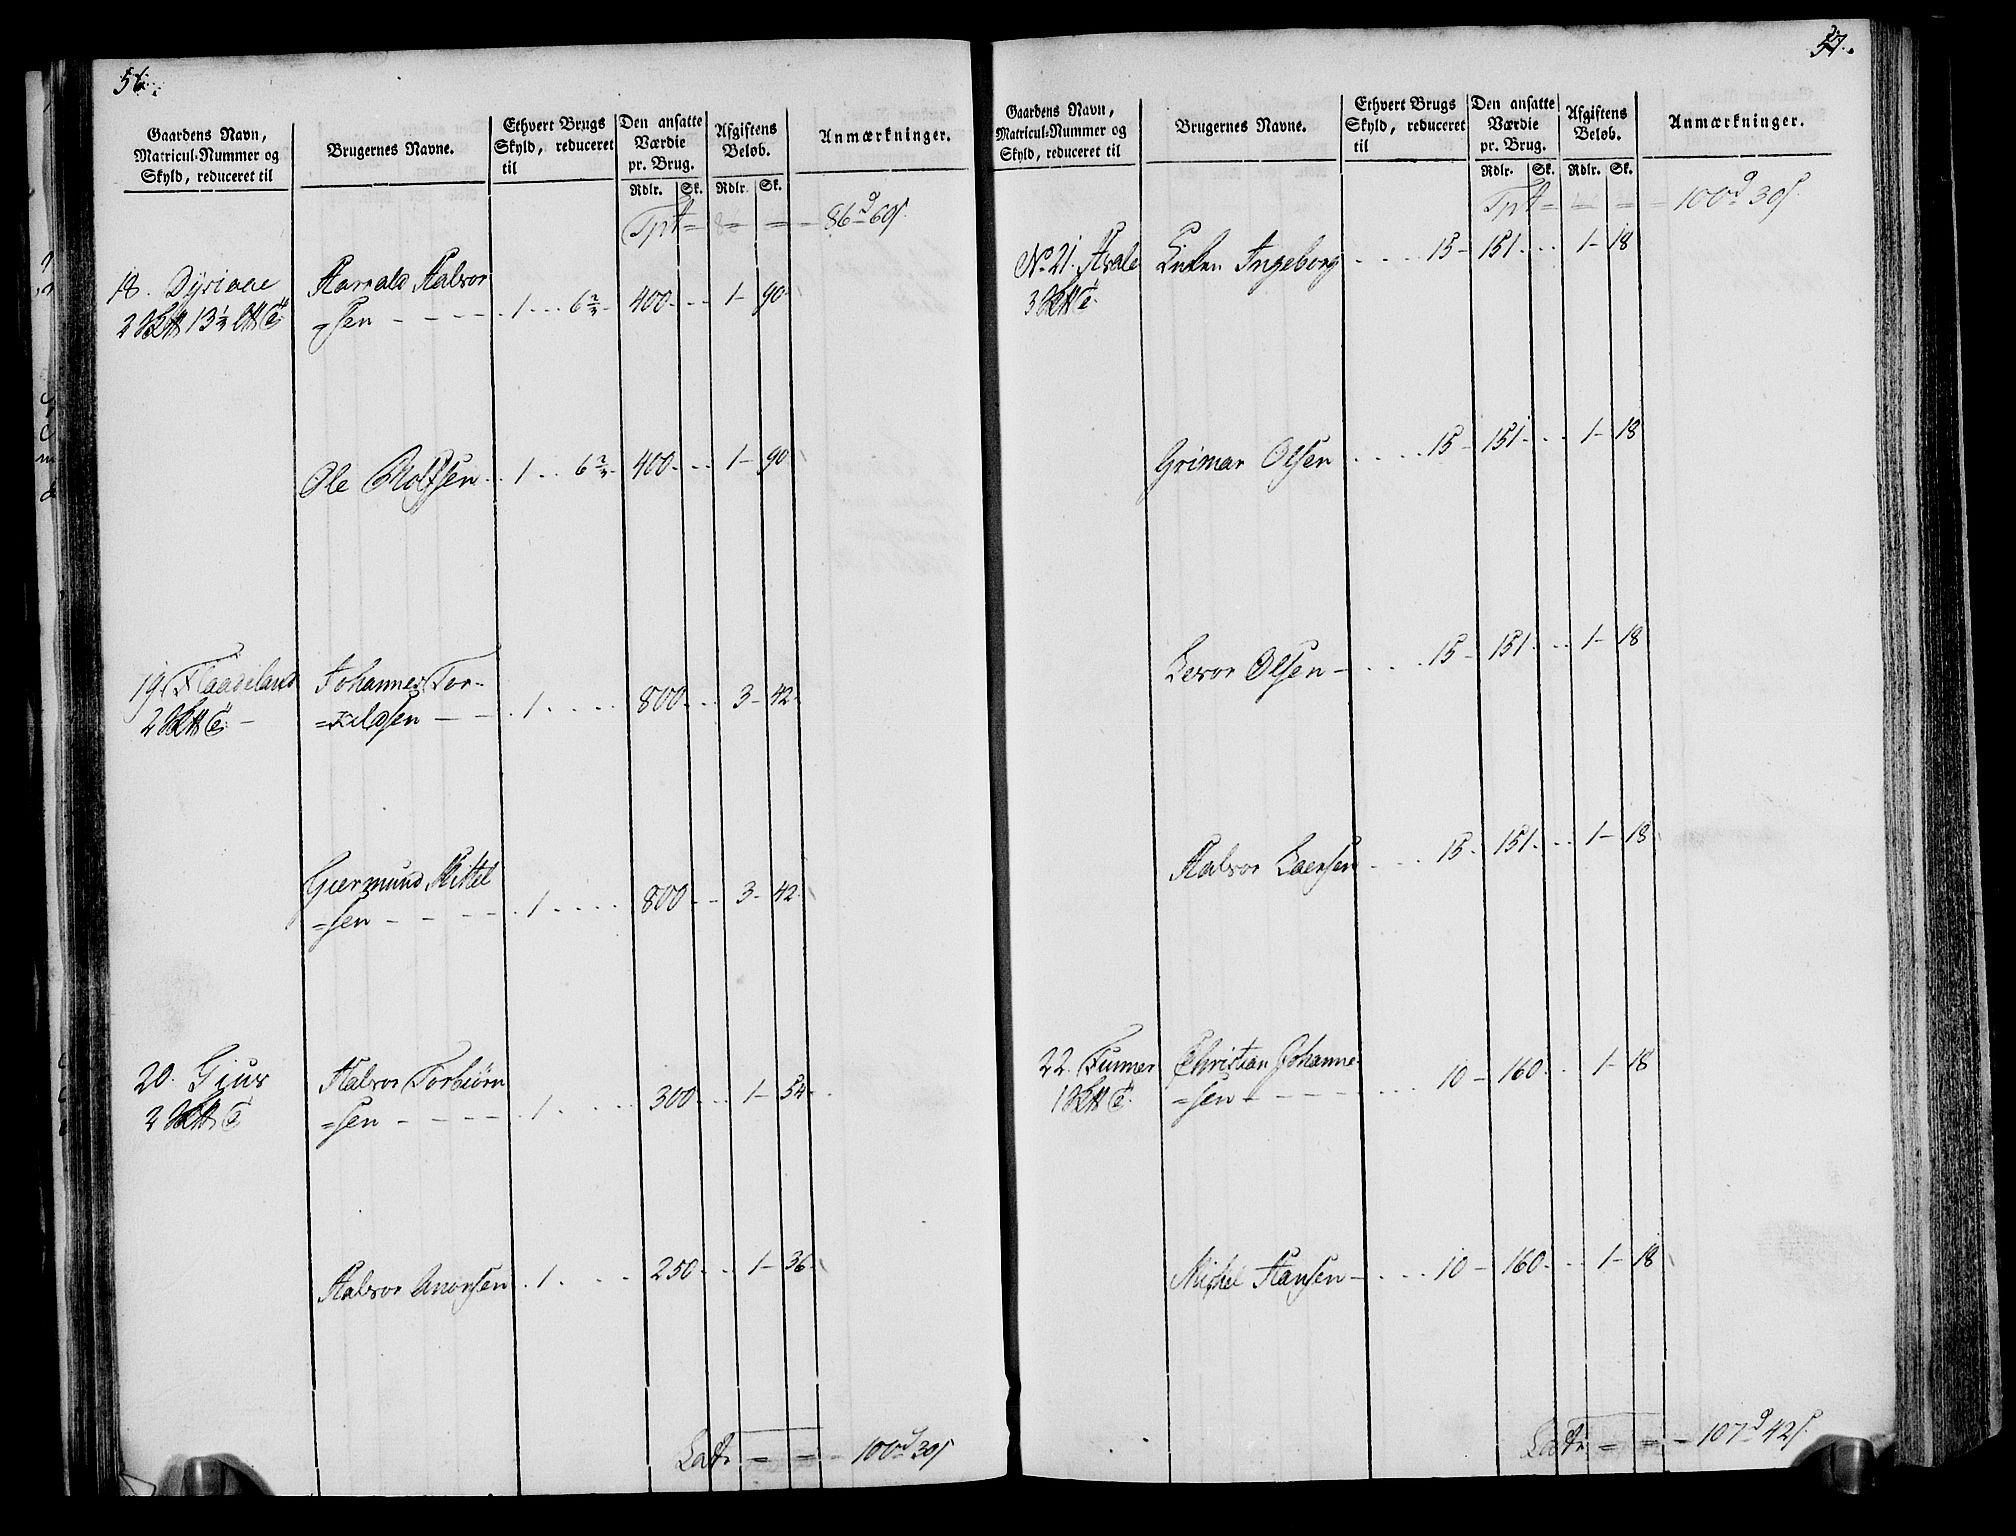 56.
Gaardens Navn,
Matricul-Nummer og
Skyld, reduceret til
Brugernes Navne.
Ethvert Brugs
Skyld, reduceret
til
Den ansatte
Værdie
pr. Brug.
Rdlr. Sk.
Afgiftens
Beløb.
Rdlr. Sk.
Anmærkninger.
Tpt = = = 86 d 60 s.
18. Dyriaae Harrald Halvor
=sen - - - - 1 . . . 6 2/3 - 400 - . . 1 - 90 -
Ole Rolfsen . . 1 . . 6 2/3 - 400 - . . 1 - 90
19. Flaadeland Johannes Tor-
=kildsen - - . 1 . . . . 800 . . 3 - 42 -
Giermund Kittel
=sen - - - - . 1 . . . . 800 . . 3 - 42 -
20. Gius Halvor Torbiørn
=sen - - - - 1 . . . . 300 . . 1 - 54 -
Halvor Anorsen . 1 . . . . 250 - . . 1 - 36 -
Latr = = 100 d 30 s
57.
Gaardens Navn,
Matricul-Nummer og
Skyld, reduceret til
Brugernes Navne.
Ethvert Brugs
Skyld, reduceret
til
Den ansatte
Værdie
pr. Brug.
Rdlr. Sk.
Afgiftens
Beløb.
Rdlr. Sk.
Anmærkninger.
Tpt = = = 100 d 30 s.
No. 21. Hvale Enken Ingeborg . . . . 15 - 151 . . . 1 - 18
Grimar Olsen . . . . 15 - 151 - . . 1 - 18
Levor Olsen - . . . . 15 - 151 - . . 1 - 18
Halvor Laersen . . . . 15 - 151 - . . 1 - 18
22. Furuer Christian Johanne
=sen - - - - . . . 10 - 160 - . . 1 - 18
Michel Hansen - . . . 10 - 160 - . . 1 - 18
Latr = = - 107 d 42 s.